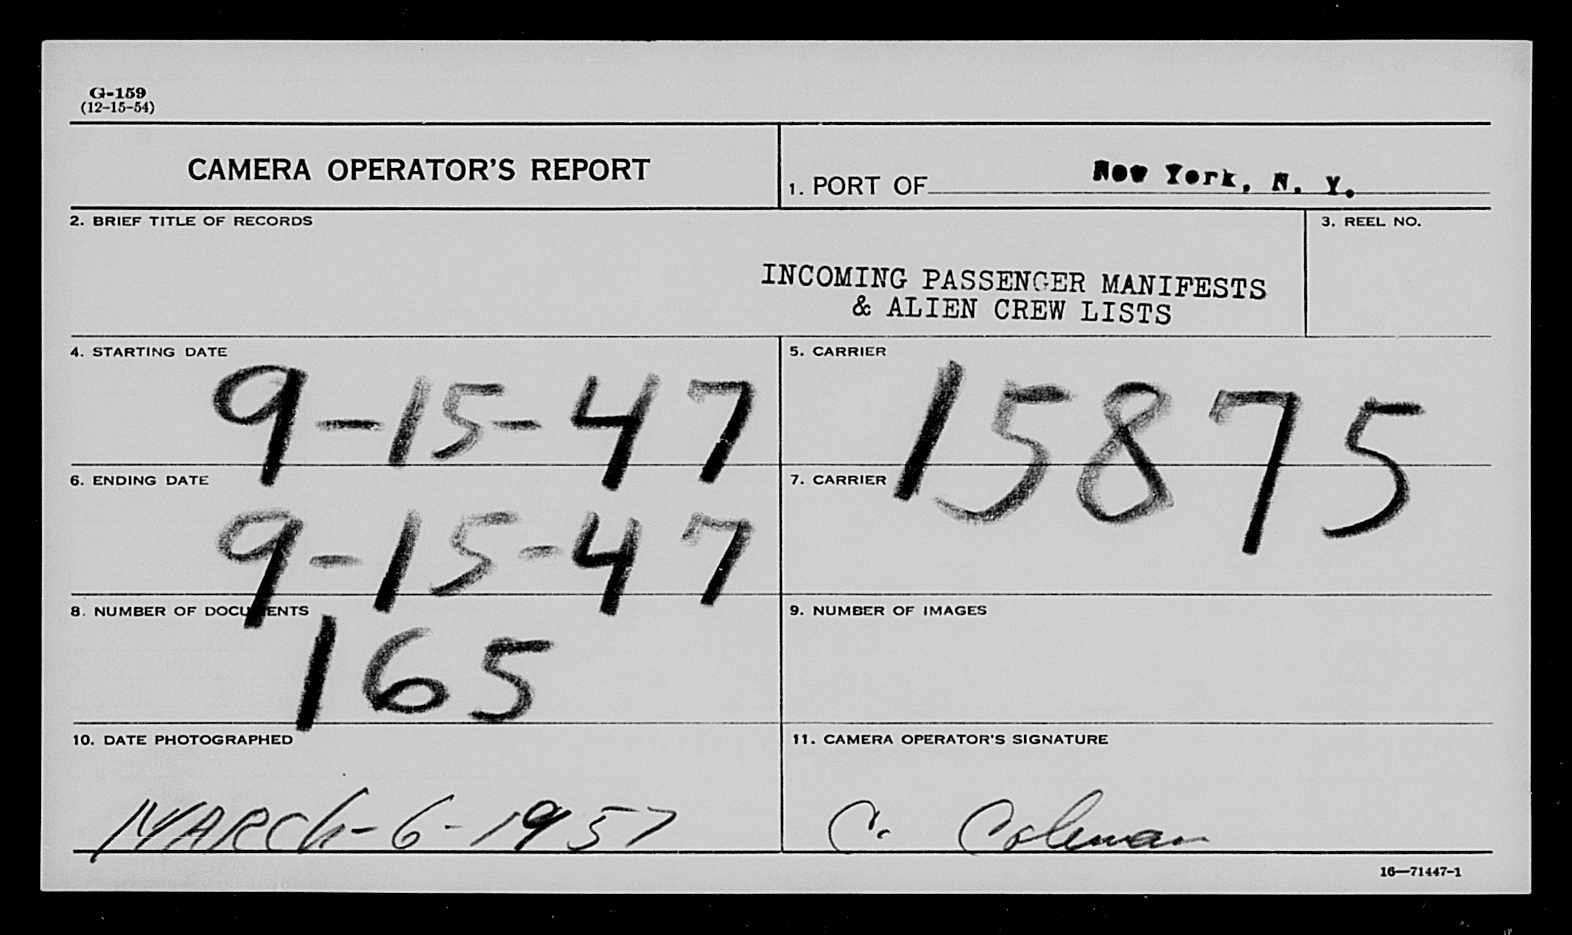 G-159
(12-15-54)
CAMERA OPERATOR'S REPORT
1. PORT OF New York, N. Y.
2. BRIEF TITLE OF RECORDS
3. REEL NO.
INCOMING PASSENGER MANIFESTS
& ALIEN CREW LISTS
4. STARTING DATE
9-15-47
5. CARRIER
15875
6. ENDING DATE
9-15-47
7. CARRIER
8. NUMBER OF DOCUMENTS
165
9. NUMBER OF IMAGES
10. DATE PHOTOGRAPHED
MARCh-6-1957
11. CAMERA OPERATOR'S SIGNATURE
C. Coleman
16—71447-1